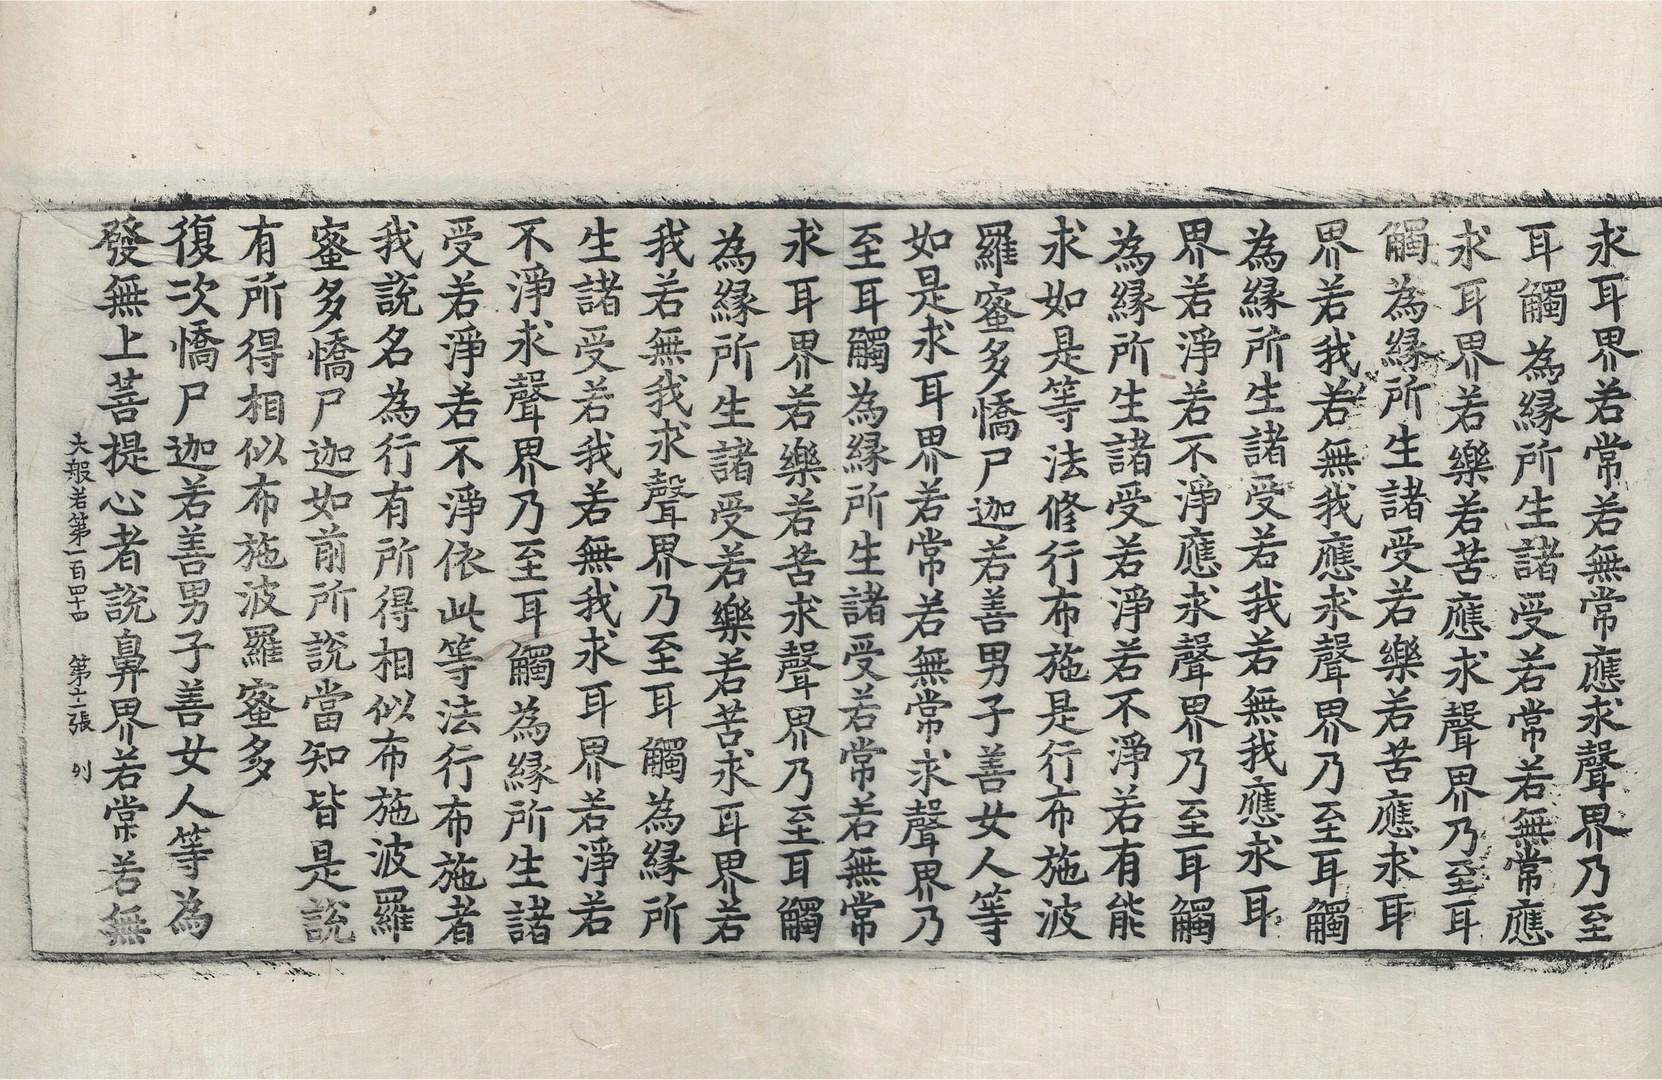 求耳界若常若無常應求聲界乃至
耳觸為緣所生諸受若常若無常應
求耳界若樂若苦應求聲界乃至耳
觸為緣所生諸受若樂若苦應求耳
界若我若無我應求聲界乃至耳觸
為緣所生諸受若我若無我應求耳
界若淨若不淨應求聲界乃至耳觸
為緣所生諸受若淨若不淨若有能
求如是等法修行布施是行布施波
羅蜜多憍尸迦若善男子善女人等
如是求耳界若常若無常求聲界乃
至耳觸為緣所生諸受若常若無常
求耳界若樂若苦求聲界乃至耳觸
為緣所生諸受若樂若苦求耳界若
我若無我求聲界乃至耳觸為緣所
生諸受若我若無我求耳界若淨若
不淨求聲界乃至耳觸為緣所生諸
受若淨若不淨依此等法行布施者
我說名為行有所得相似布施波羅
蜜多憍尸迦如前所說當知皆是說
有所得相似布施波羅蜜多
復次憍尸迦若善男子善女人等為
發無上菩提心者說鼻界若常若無
大般若第一百四十四 第十二張 列